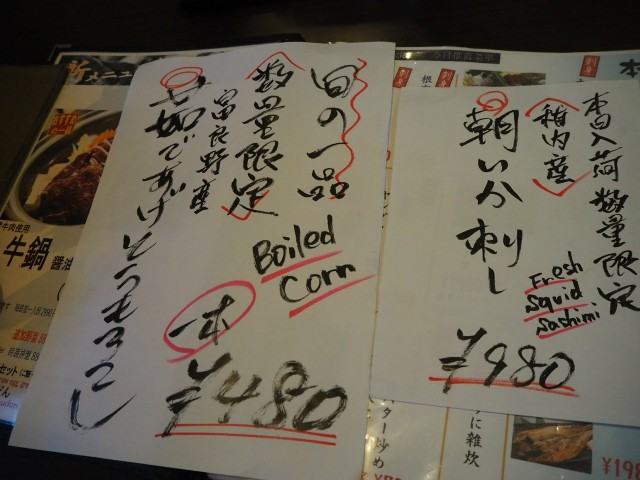 旬の一品
数量限定
富良野産
茹であげとうもろこし
Boiled
Corn
一本
¥480
本日入荷 数量限定
稚内産
朝いか刺し
Fresh
Squid
Sashimi
¥980
新メニュー
牛鍋 醤油
に雑炊
ター炒め
¥198